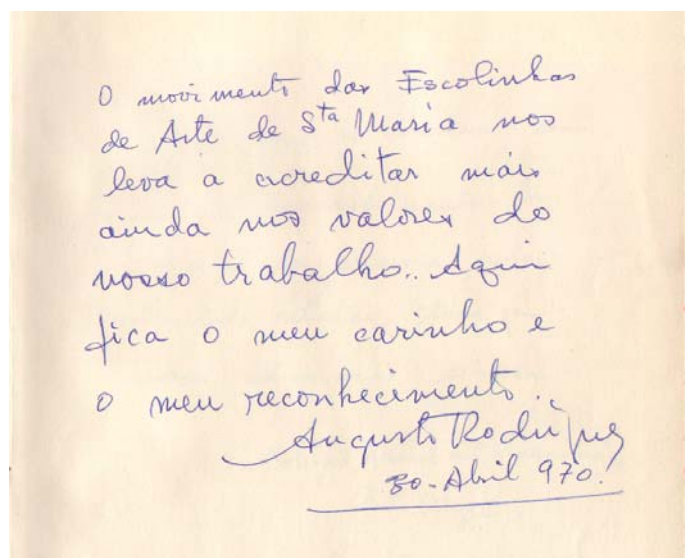 O movimento das Escolinhas
de Arte de Sta Maria nos
leva a acreditar mais
ainda nos valores do
nosso trabalho.. Aqui
fica o meu carinho e
o meu reconhecimento..
Augusto Rodrigues
30-Abril 970.